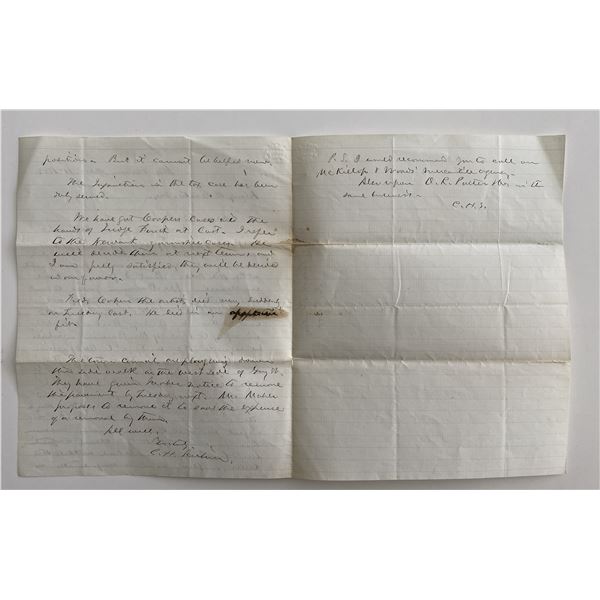 positions. But it cannot be helped now.
The Injunction in the tax case has been
duly served.
We have got Coopers Cases in the
hands of Judge at last. I refer
to the garnishee cases. He
will decide them at next term and
I am fully satisfied they will be decided
in our favor.
Cooper the died very suddenly
on Tuesday last. He died in an apoplectic
fit.
The Town Council are ploughing down
the side walk on the west side of
They have given notice to remove
the pavement by Tuesday next. Mr.
proposes to remove it to save the expense
of a removal by them.
All well.
C. H.
P.S. I would recommend you to call on
McKillop & Woods' Mercantile agency.
Also upon O. R. Potter & Co with
same business.
C.H.S.